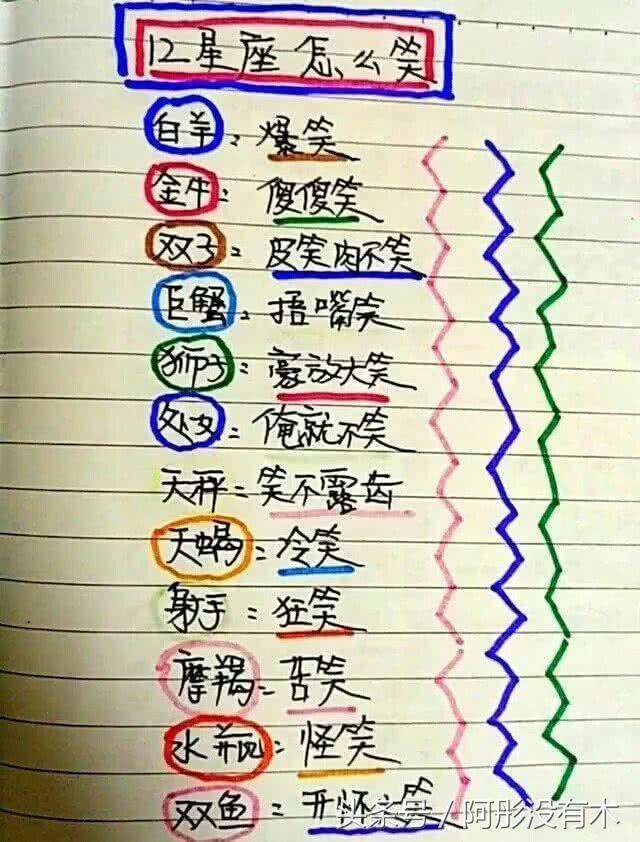 12星座怎么笑
白羊：爆笑
金牛：傻傻笑
双子：皮笑肉不笑
巨蟹：捂嘴笑
狮子：豪放大笑
处女：俺就不笑
天秤：笑不露齿
天蝎：冷笑
射手：狂笑
摩羯：苦笑
水瓶：怪笑
双鱼：开怀之笑
头条号/阿彤没有木